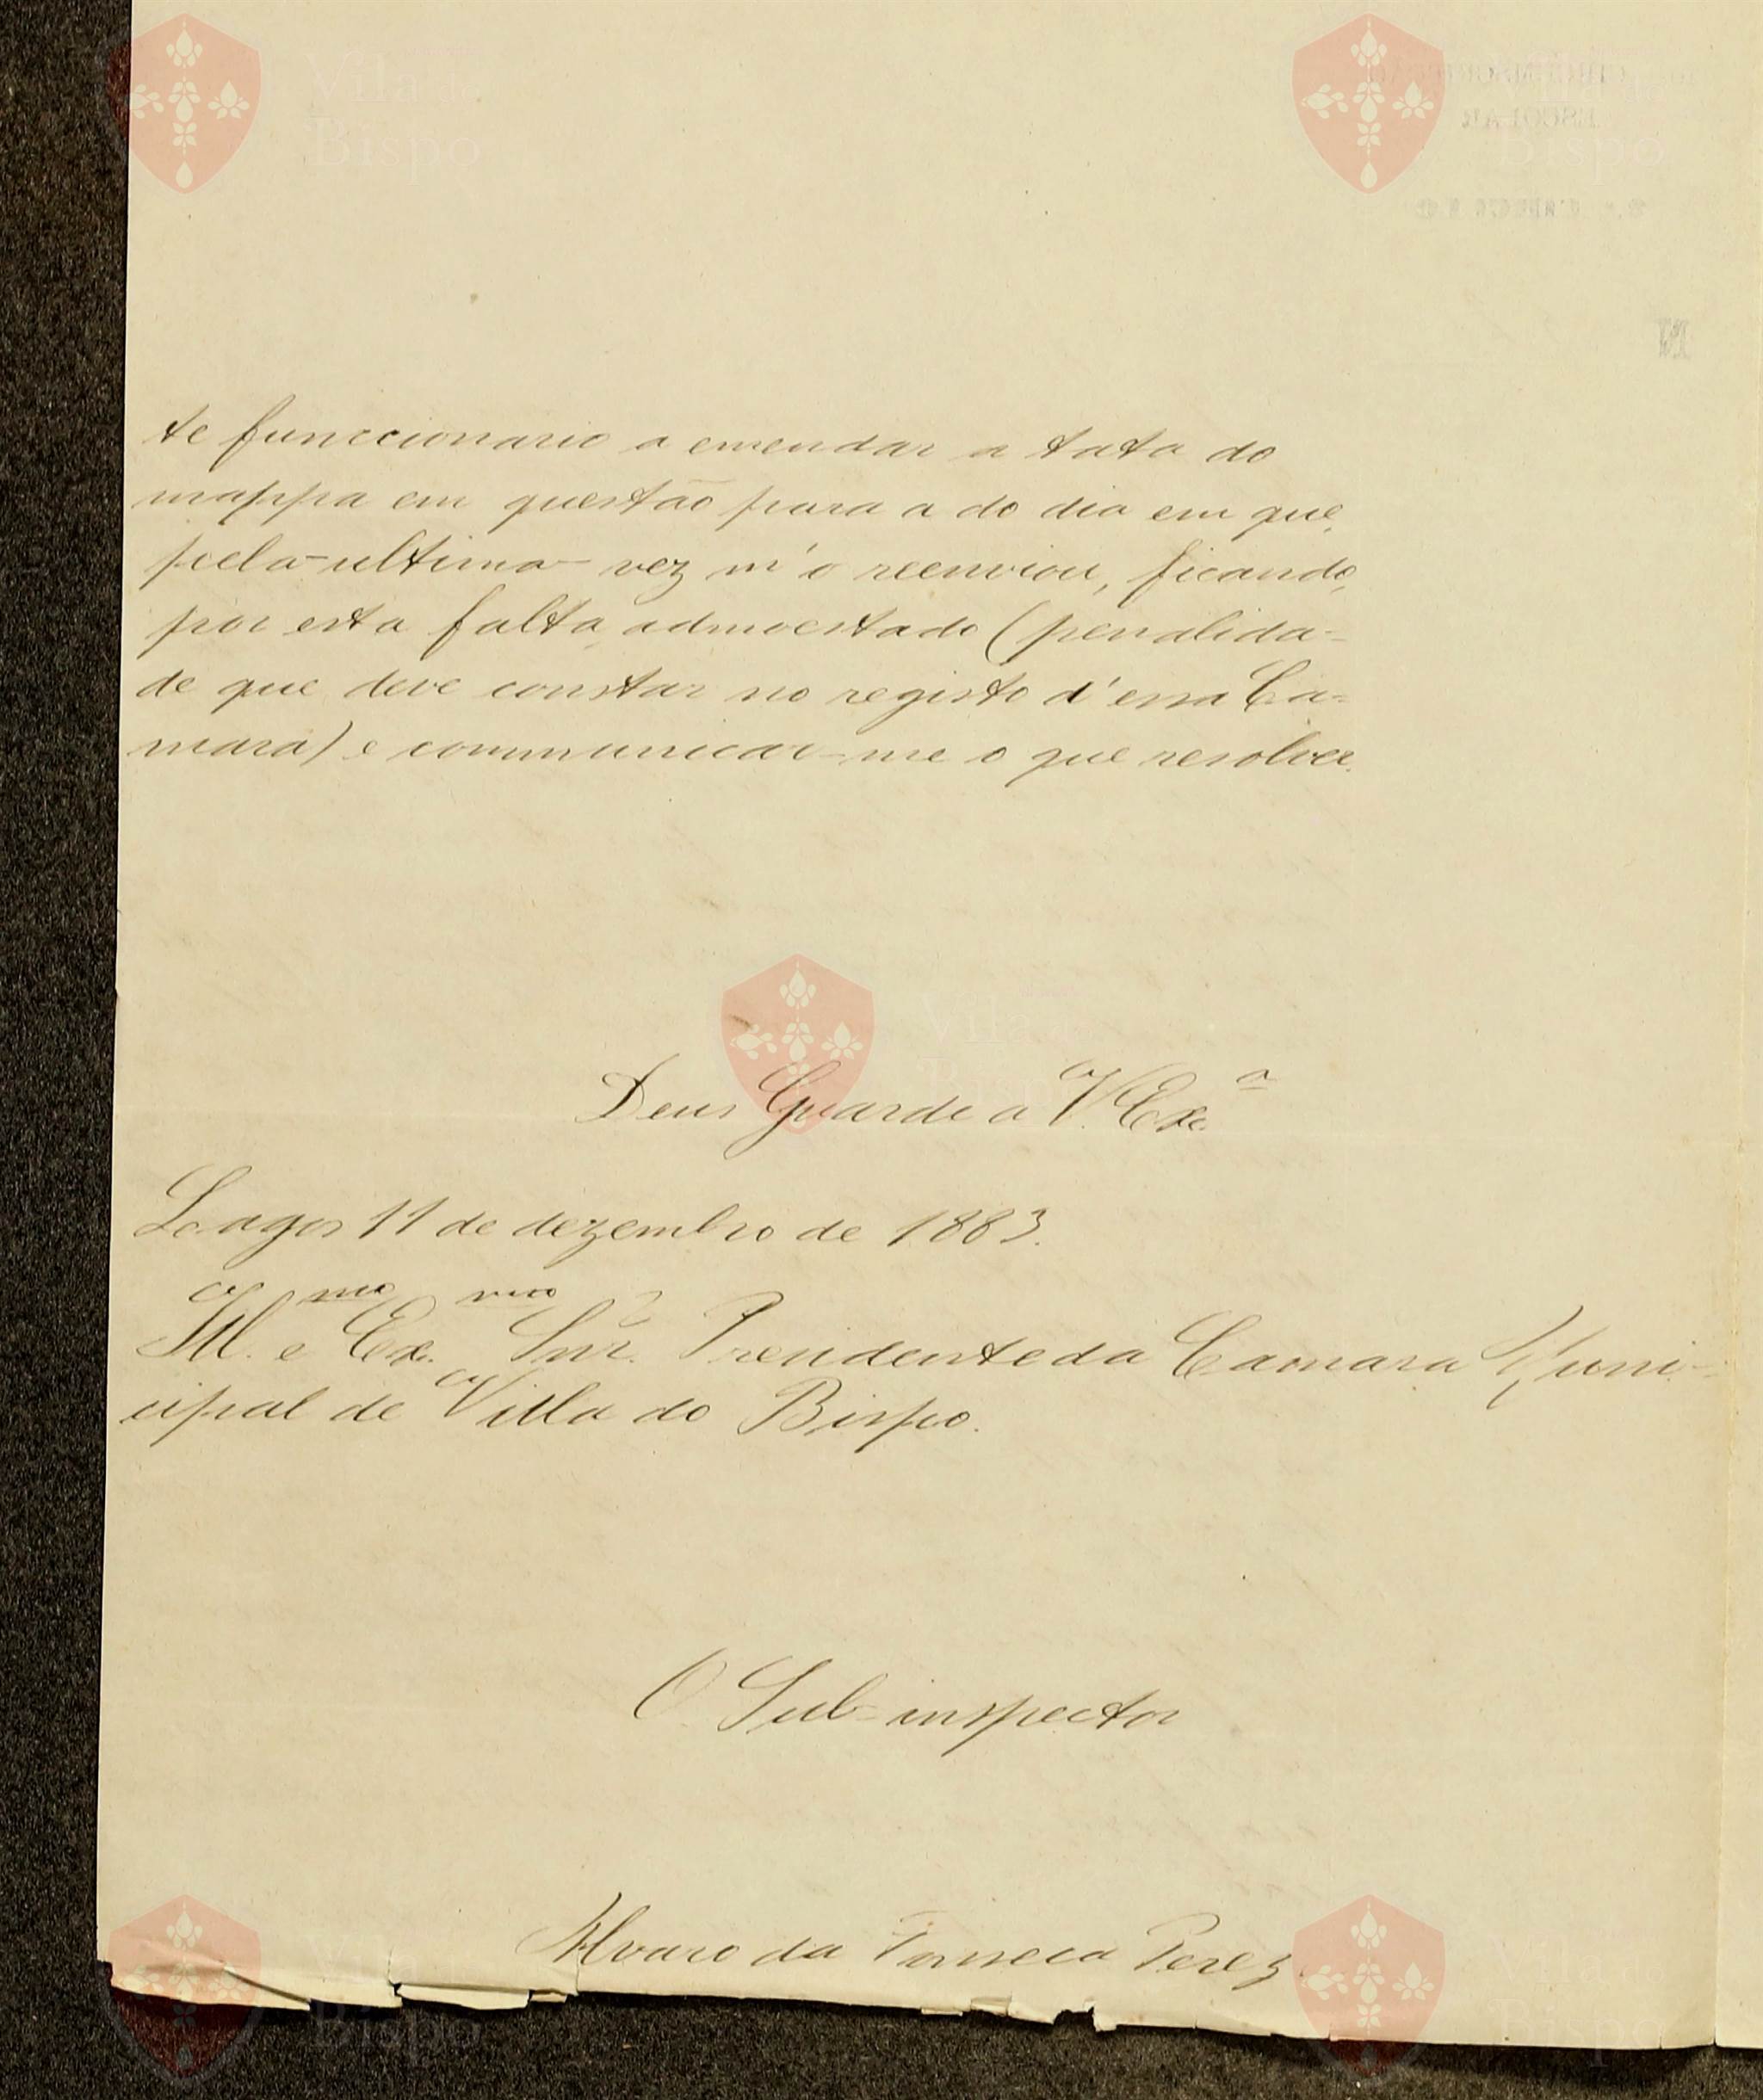 te funccionario a emendar a tata do
mappa em questão para a do dia em que,
pela ultima vez m'o reenviou, ficando,
por esta falta, admoestado (penalida-
de que deve constar no registo d'essa Ca-
mara) e communicar-me o que resolver.
Deus Guarde a V. Ex.ª
Lagos 11 de dezembro de 1883.
Ill.mo e Ex.mo Snr. Presidente da Camara Muni-
cipal de Villa do Bispo.
O Sub-inspector
Alvaro da Fonseca Perez
Vila do
Bispo
Vila do
Bispo
Vila do
Bispo
Vila do
Bispo
Vila do
Bispo